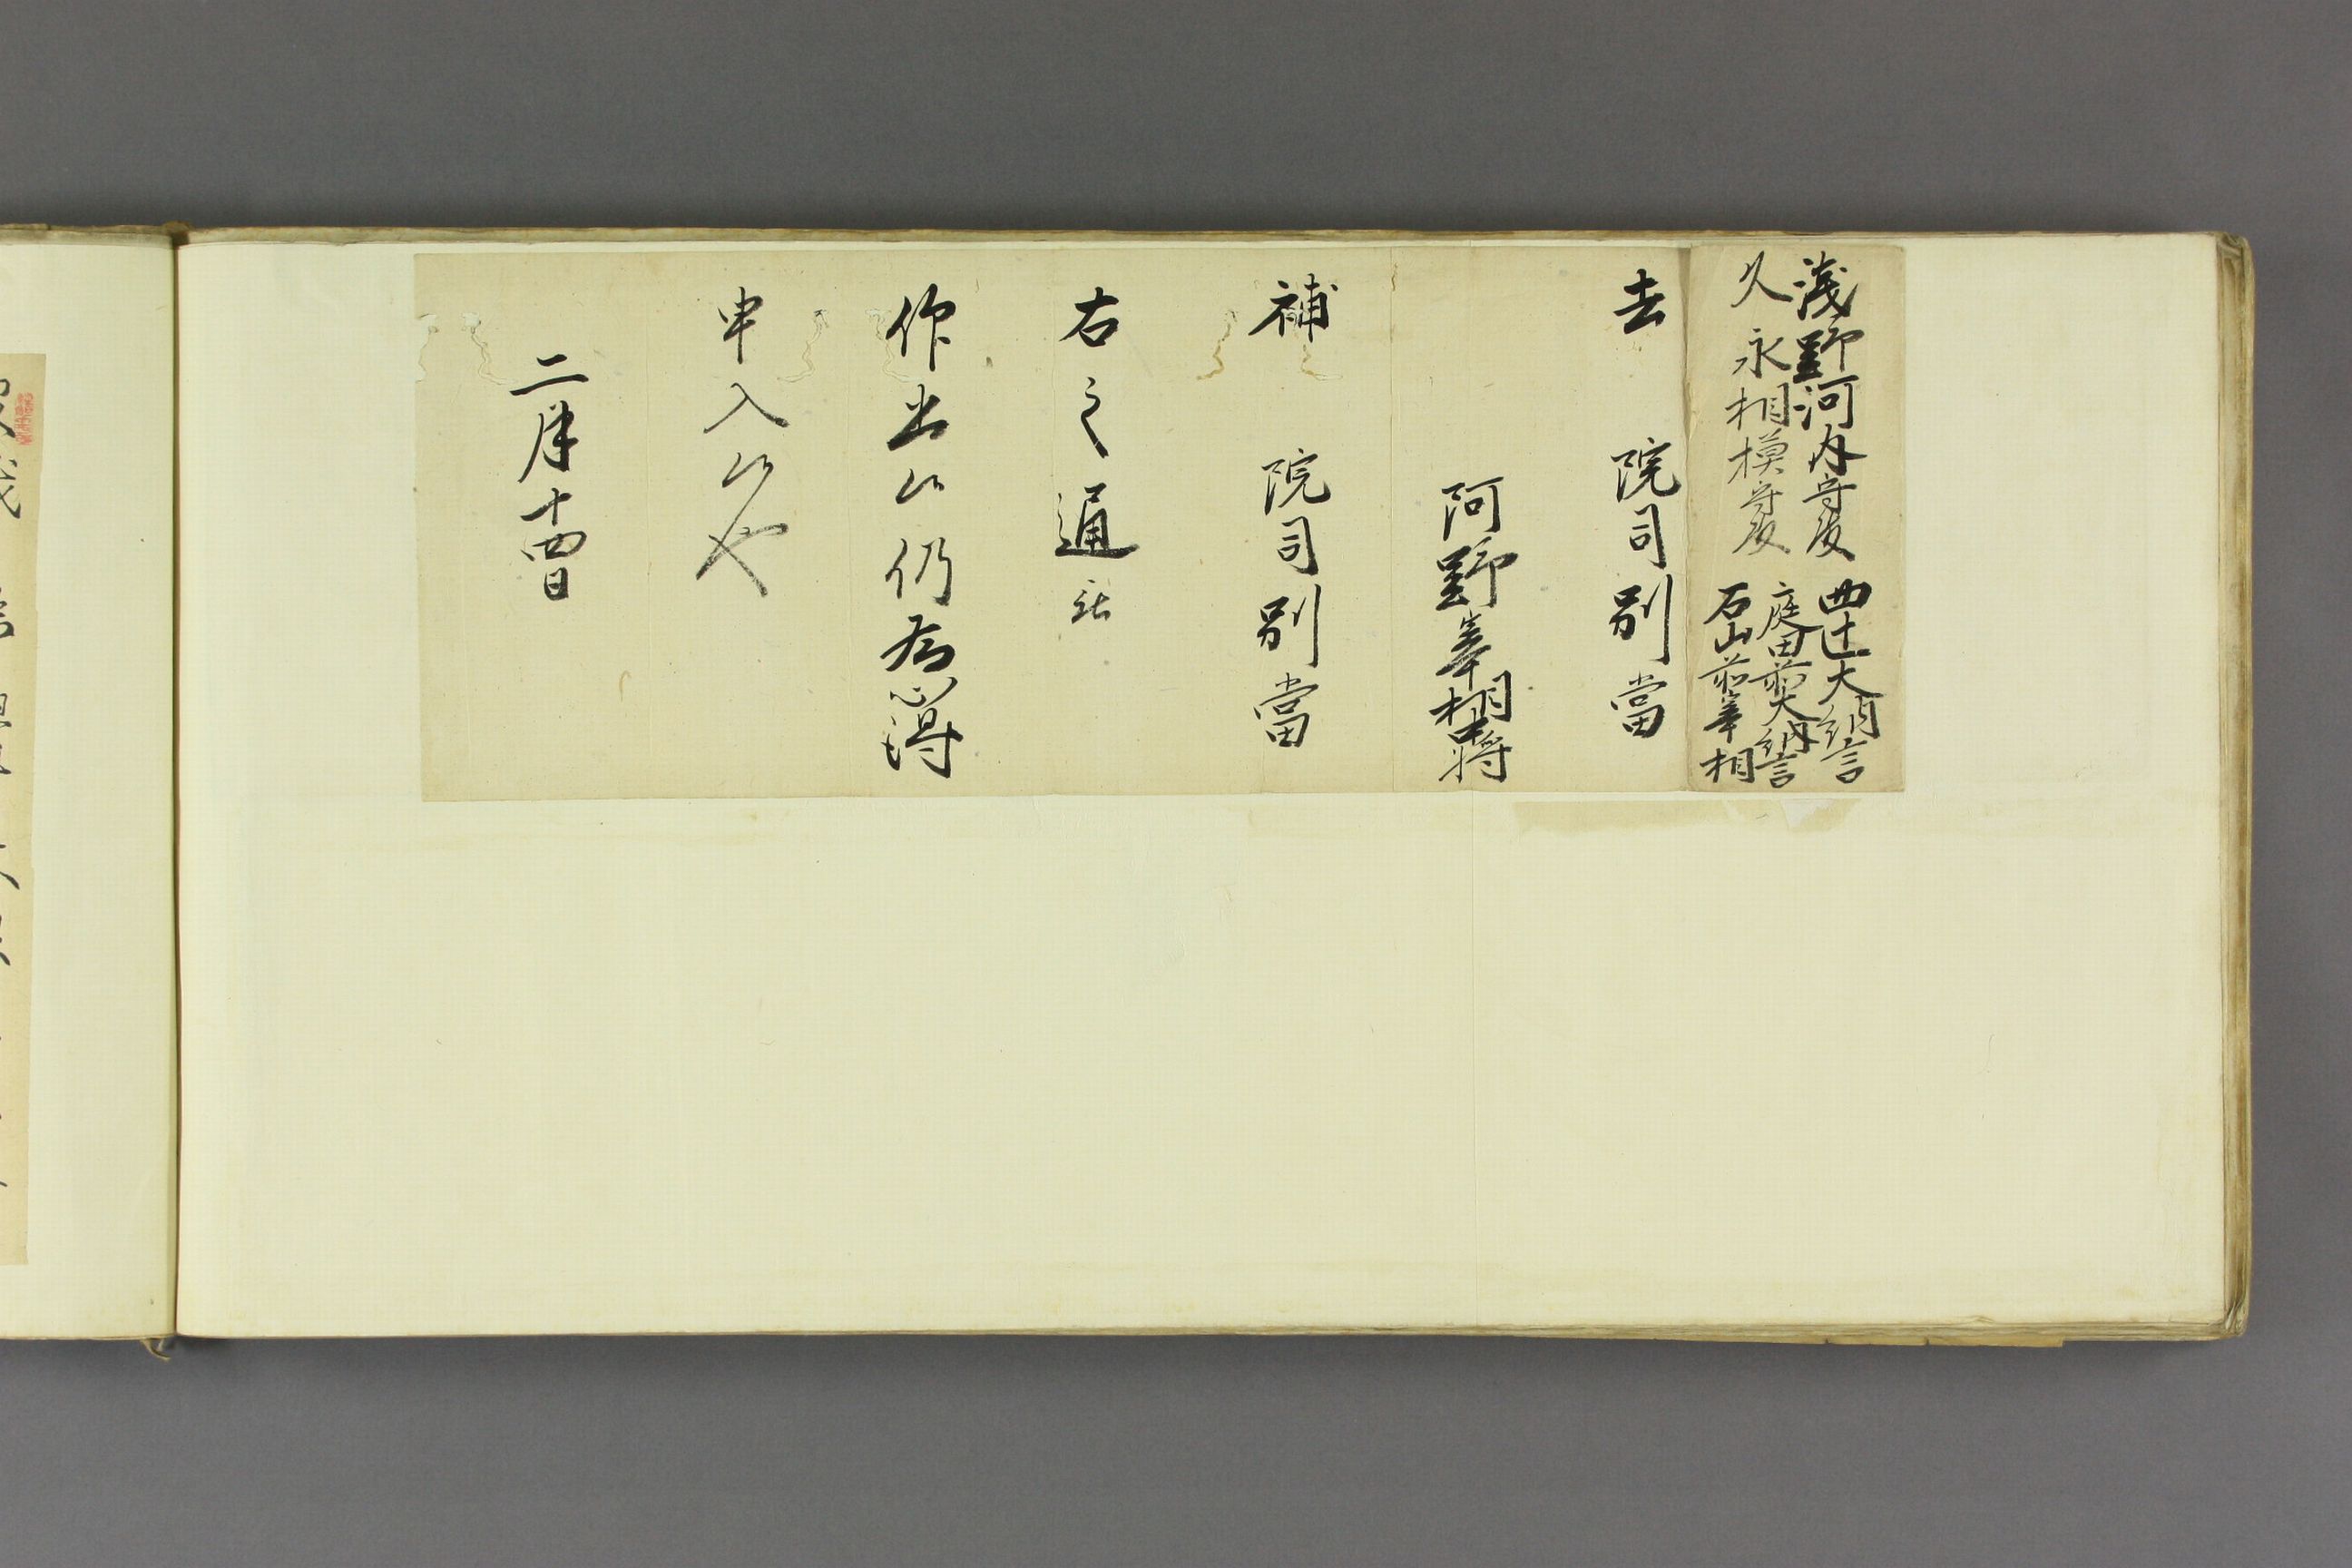 淺野河内守殿
久永相模守殿
四辻大納言
庭田前大納言
石山前宰相
去 院司別當
阿野宰相中將
補 院司別當
右之通被
仰出候仍爲心得
申入候也
二月十四日